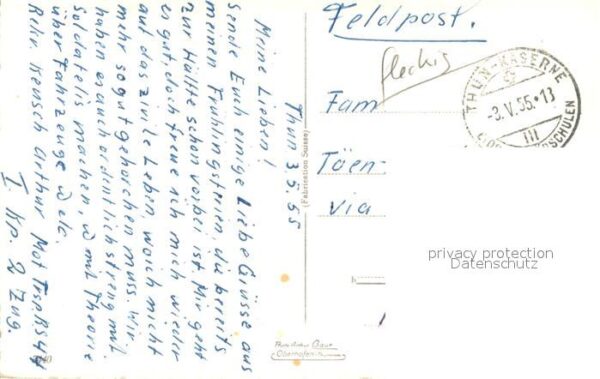 Thun 3.5.55
Meine Lieben!
Sende Euch einige Liebe Grüsse aus
meinen Frühlingsferien, die bereits
zur Hälfte schon vorbei ist. Mir geht
es gut, doch freue ich mich wieder
auf das zivile Leben, wo ich nicht
mehr so gut gehorchen muss. Wir
haben es auch ordentlich streng mit
Soldatelis machen, u mit Theorie
über Fahrzeuge u etc.
Rekr. Reusch Arthur Mot Trsp RS
I. Kp. 2 Zug.
Feldpost.
fleckig
THUN-KASERNE
-3.V.55.-13
III
Fam
Töen-
via
(Fabrication Suisse)
privacy protection
Datenschutz
Gaur
Oberhofen